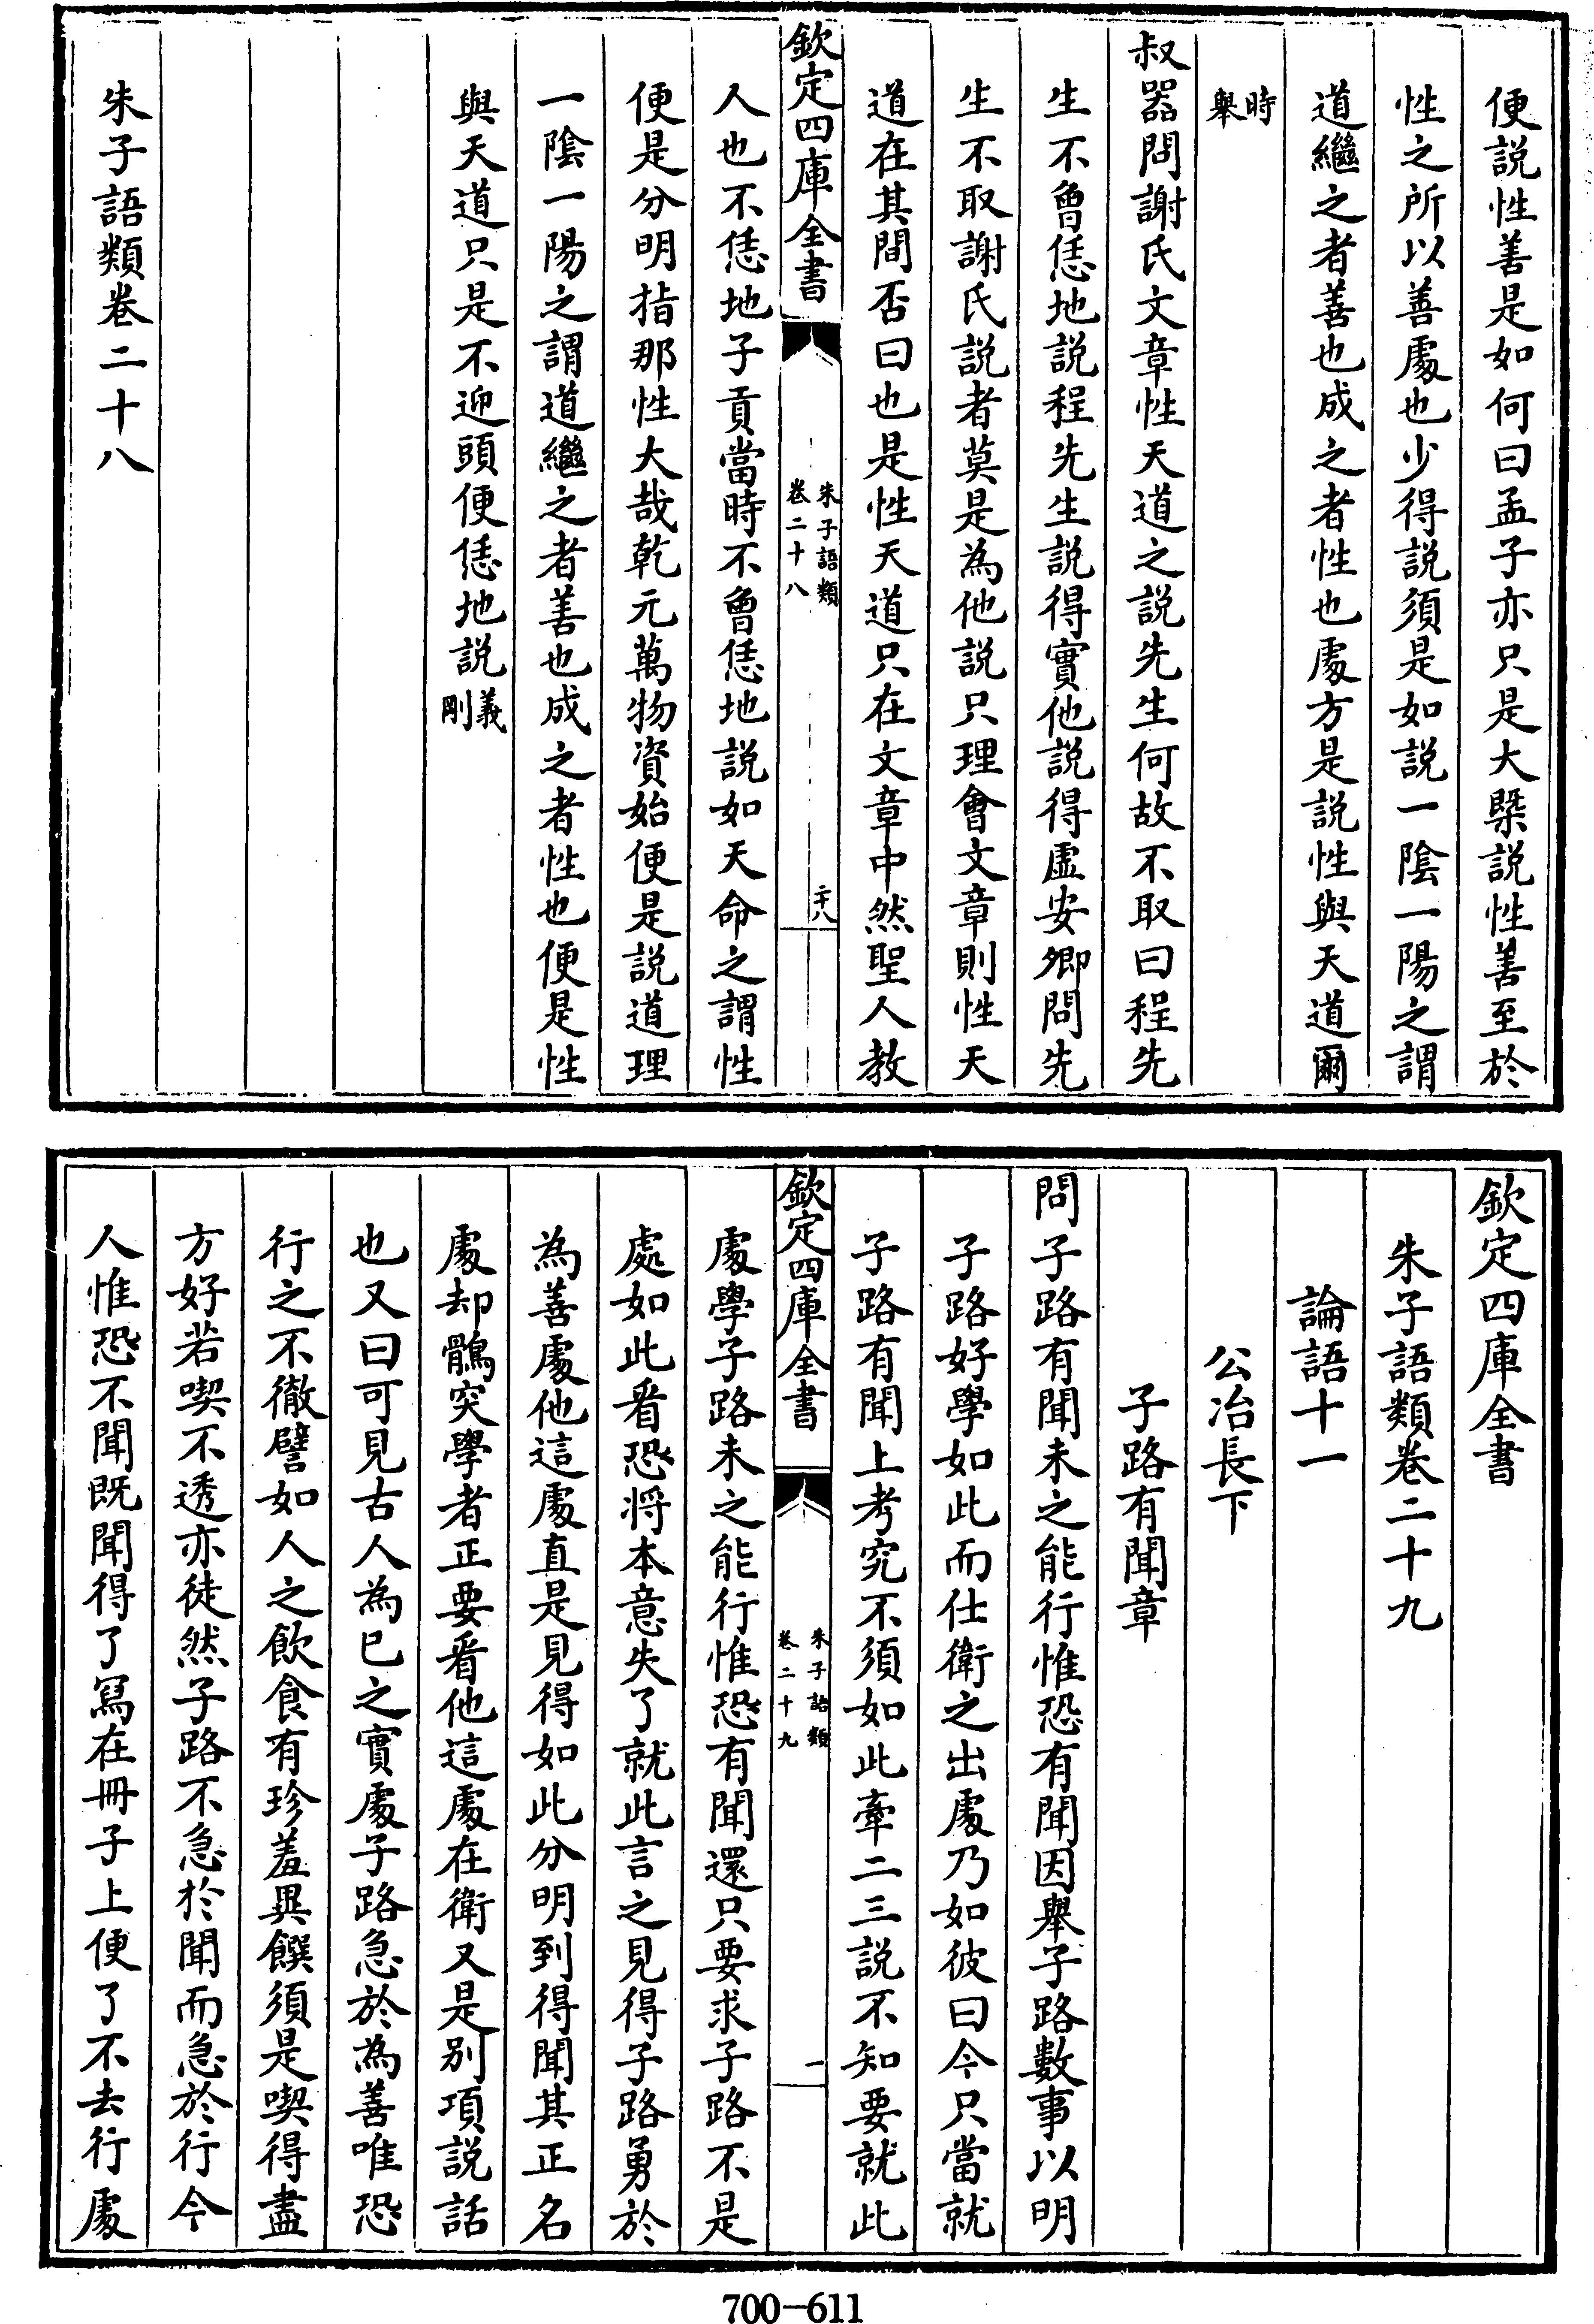 便説性善是如何曰孟子亦只是大槩説性善至於
性之所以善處也少得説須是如説一隂一陽之謂
道繼之者善也成之者性也處方是説性與天道爾
時舉
叔器問謝氏文章性天道之説先生何故不取曰程先
生不曾恁地説程先生説得實他説得虚安卿問先
生不取謝氏説者莫是為他説只理會文章則性天
道在其間否曰也是性天道只在文章中然聖人教
欽定四庫全書
朱子語類
卷二十八
二十八
人也不恁地子貢當時不曾恁地説如天命之謂性
便是分明指那性大哉乾元萬物資始便是説道理
一隂一陽之謂道繼之者善也成之者性也便是性
與天道只是不迎頭便恁地説義剛
朱子語類卷二十八
欽定四庫全書
朱子語類卷二十九
論語十一
公冶長下
子路有聞章
問子路有聞未之能行惟恐有聞因舉子路數事以明
子路好學如此而仕衛之出處乃如彼曰今只當就
子路有聞上考究不須如此牽二三説不知要就此
欽定四庫全書
朱子語類
卷二十九
一
處學子路未之能行惟恐有聞還只要求子路不是
處如此看恐将本意失了就此言之見得子路勇於
為善處他這處直是見得如此分明到得聞其正名
處却鶻突學者正要看他這處在衛又是别項説話
也又曰可見古人為已之實處子路急於為善唯恐
行之不徹譬如人之飲食有珍羞異饌須是喫得盡
方好若喫不透亦徒然子路不急於聞而急於行今
人惟恐不聞既聞得了寫在冊子上便了不去行處
700-611